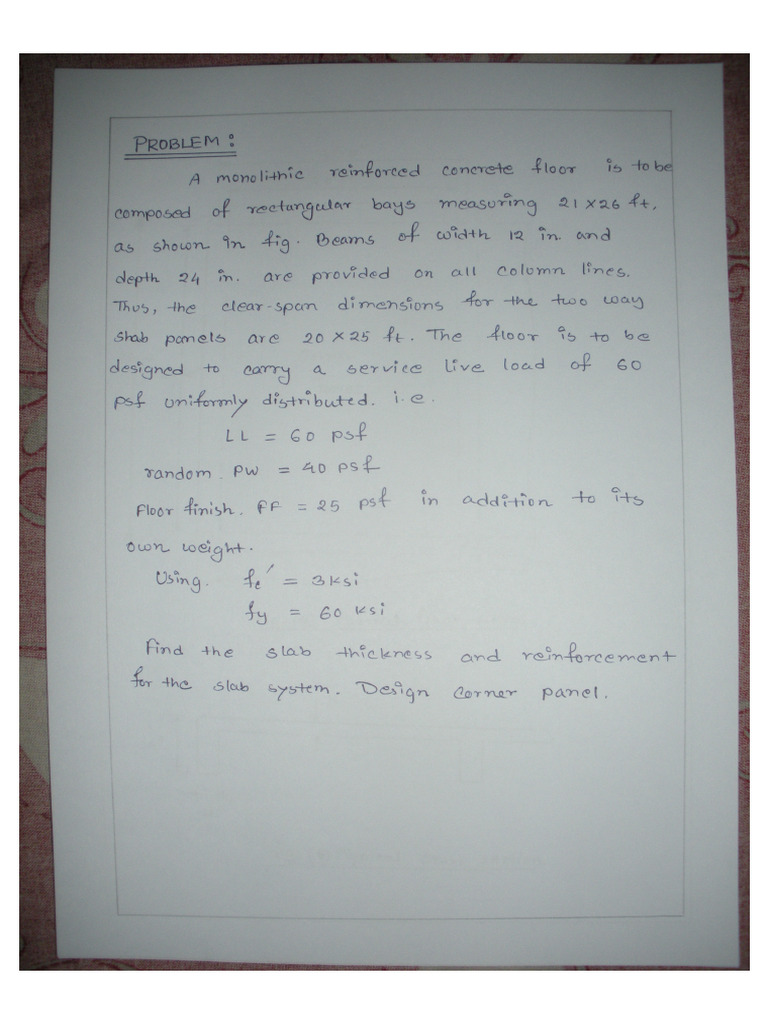 PROBLEM:
A monolithic reinforced concrete floor is to be
composed of rectangular bays measuring 21 x 26 ft,
as shown in fig. Beams of width 12 in. and
depth 24 in. are provided on all column lines.
Thus, the clear-span dimensions for the two way
shab panels are 20 x 25 ft. The floor is to be
designed to carry a service live load of 60
psf uniformly distributed. i.e.
LL = 60 psf
random. PW = 40 PSf
Floor finish. FF = 25 psf in addition to its
own weight.
Using. fc' = 3ksi
fy = 60 ksi
Find the slab thickness and reinforcement
for the slab system. Design corner panel.